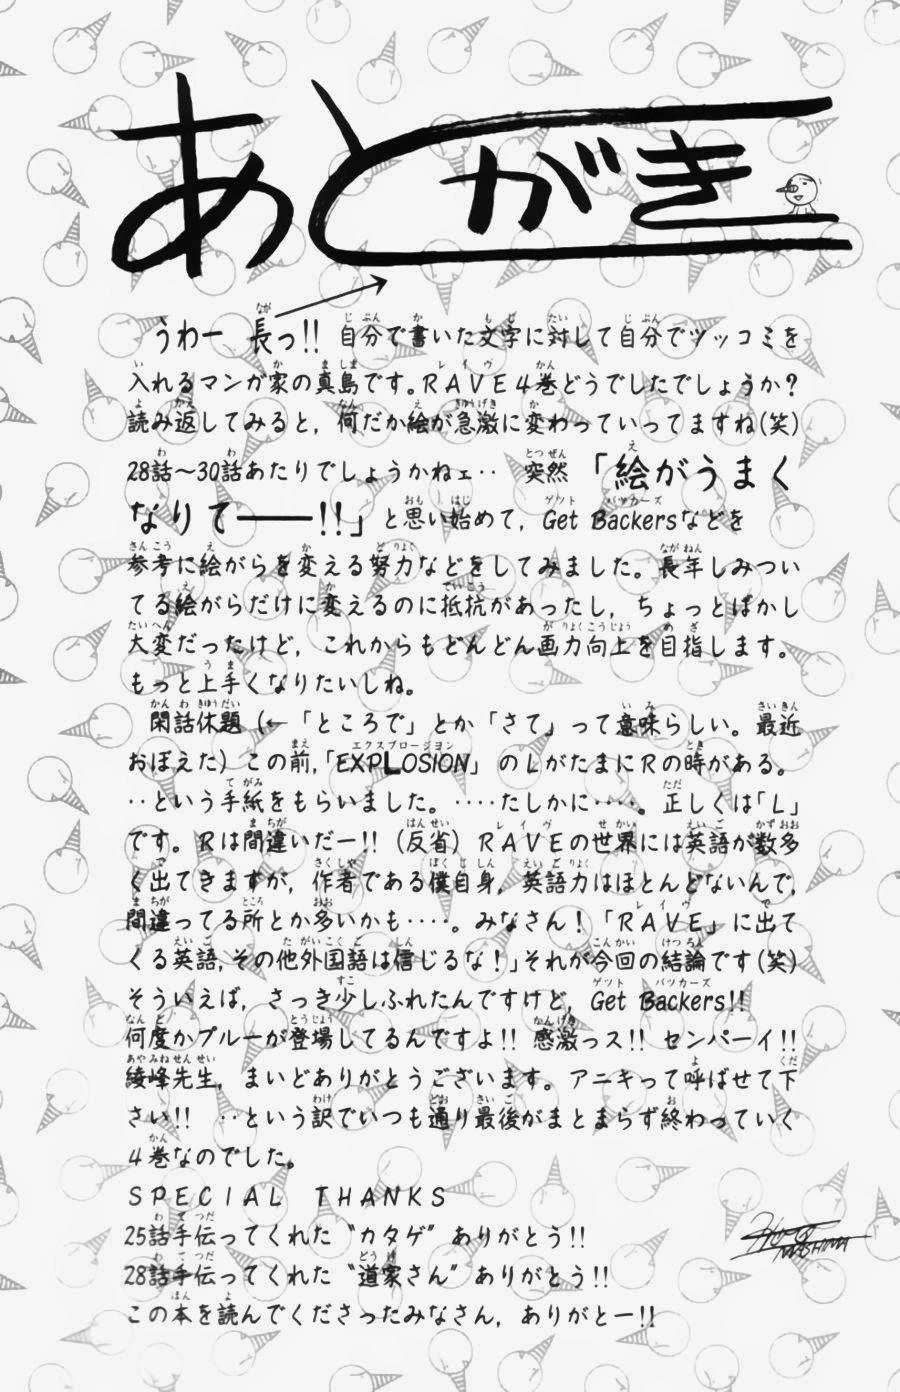 あとがき
うわー 長っ!! 自分で書いた文字に対して自分でツッコミを
入れるマンガ家の真島です。RAVE4巻どうでしたでしょうか?
読み返してみると, 何だか絵が急激に変わっていってますね(笑)
28話〜30話あたりでしょうかねェ‥ 突然「絵がうまく
なりてーーー!!」と思い始めて, Get Backersなどを
参考に絵がらを変える努力などをしてみました。長年しみつい
てる絵がらだけに変えるのに抵抗があったし, ちょっとばかし
大変だったけど, これからもどんどん画力向上を目指します。
もっと上手くなりたいしね。
閑話休題 (←「ところで」とか「さて」って意味らしい。最近
おぼえた) この前,「EXPLOSION」のLがたまにRの時がある。
‥という手紙をもらいました。‥‥たしかに‥‥。正しくは「L」
です。Rは間違いだー!! (反省) RAVEの世界には英語が数多
く出てきますが, 作者である僕自身, 英語力はほとんどないんで,
間違ってる所とか多いかも‥‥。みなさん!「RAVE」に出て
くる英語,その他外国語は信じるな!」それが今回の結論です(笑)
そういえば, さっき少しふれたんですけど, Get Backers!!
何度かプルーが登場してるんですよ!! 感激っス!! センパーイ!!
綾峰先生, まいどありがとうございます。アニキって呼ばせて下
さい!! ‥という訳でいつも通り最後がまとまらず終わっていく
4巻なのでした。
SPECIAL THANKS
25話手伝ってくれた "カタゲ" ありがとう!!
28話手伝ってくれた "道家さん" ありがとう!!
この本を読んでくださったみなさん, ありがとー!!
HIRO MASHIMA